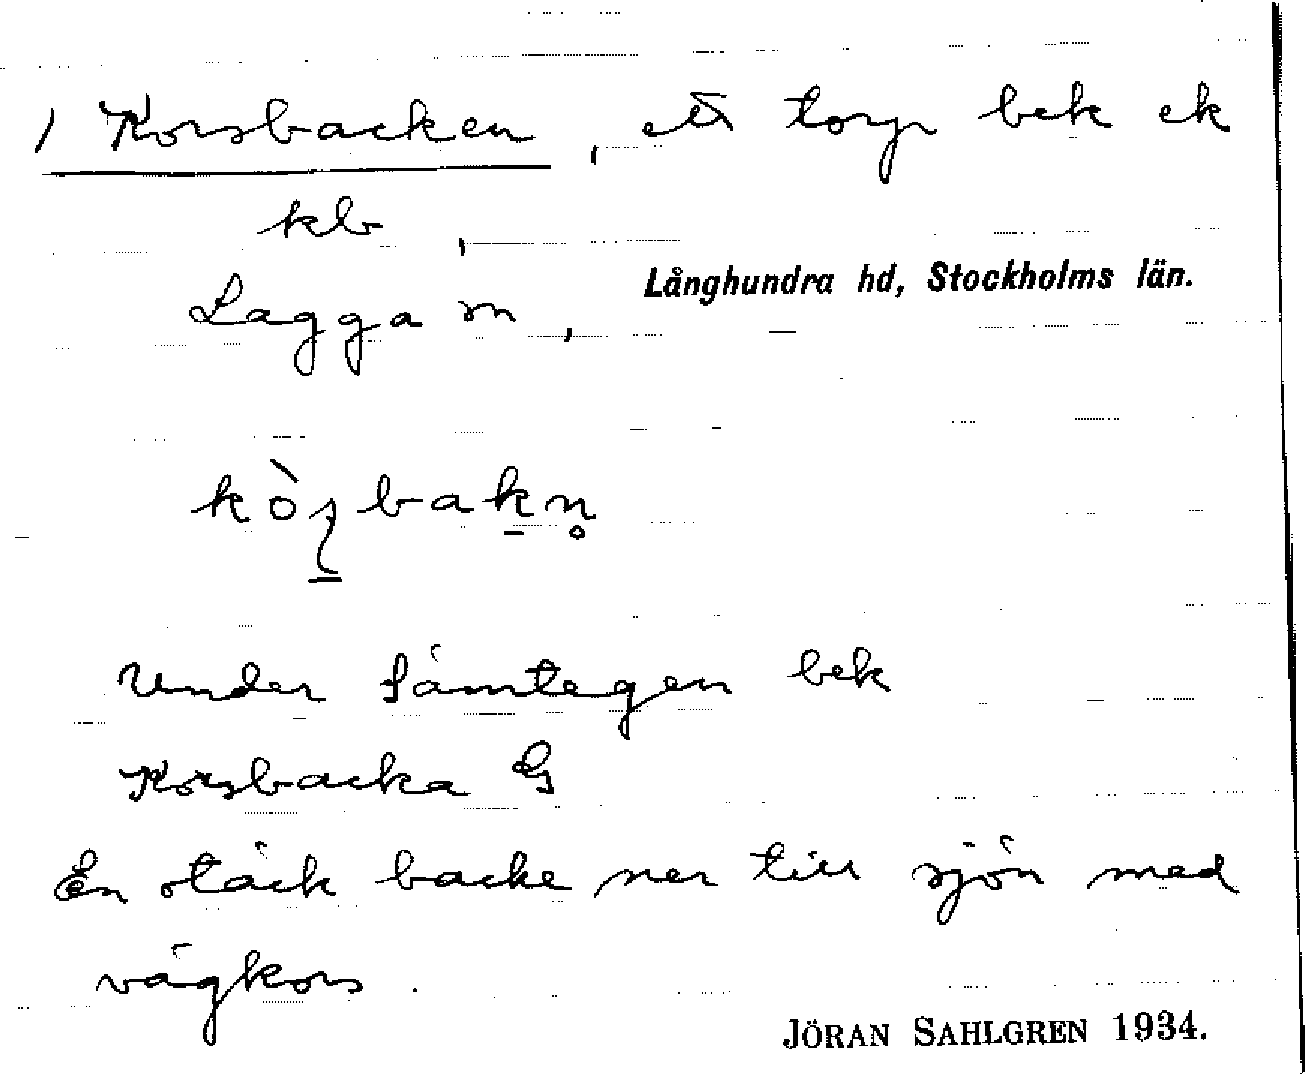 1) Korsbacken, ett torp bek ek
klb,
Lagga sn, Långhundra hd, Stockholms län.
kòʂbakn̥
Under Såmtegen bek
Korsbacka G
En stäck backe ner till sjön med
vägkors.
JÖRAN SAHLGREN 1934.